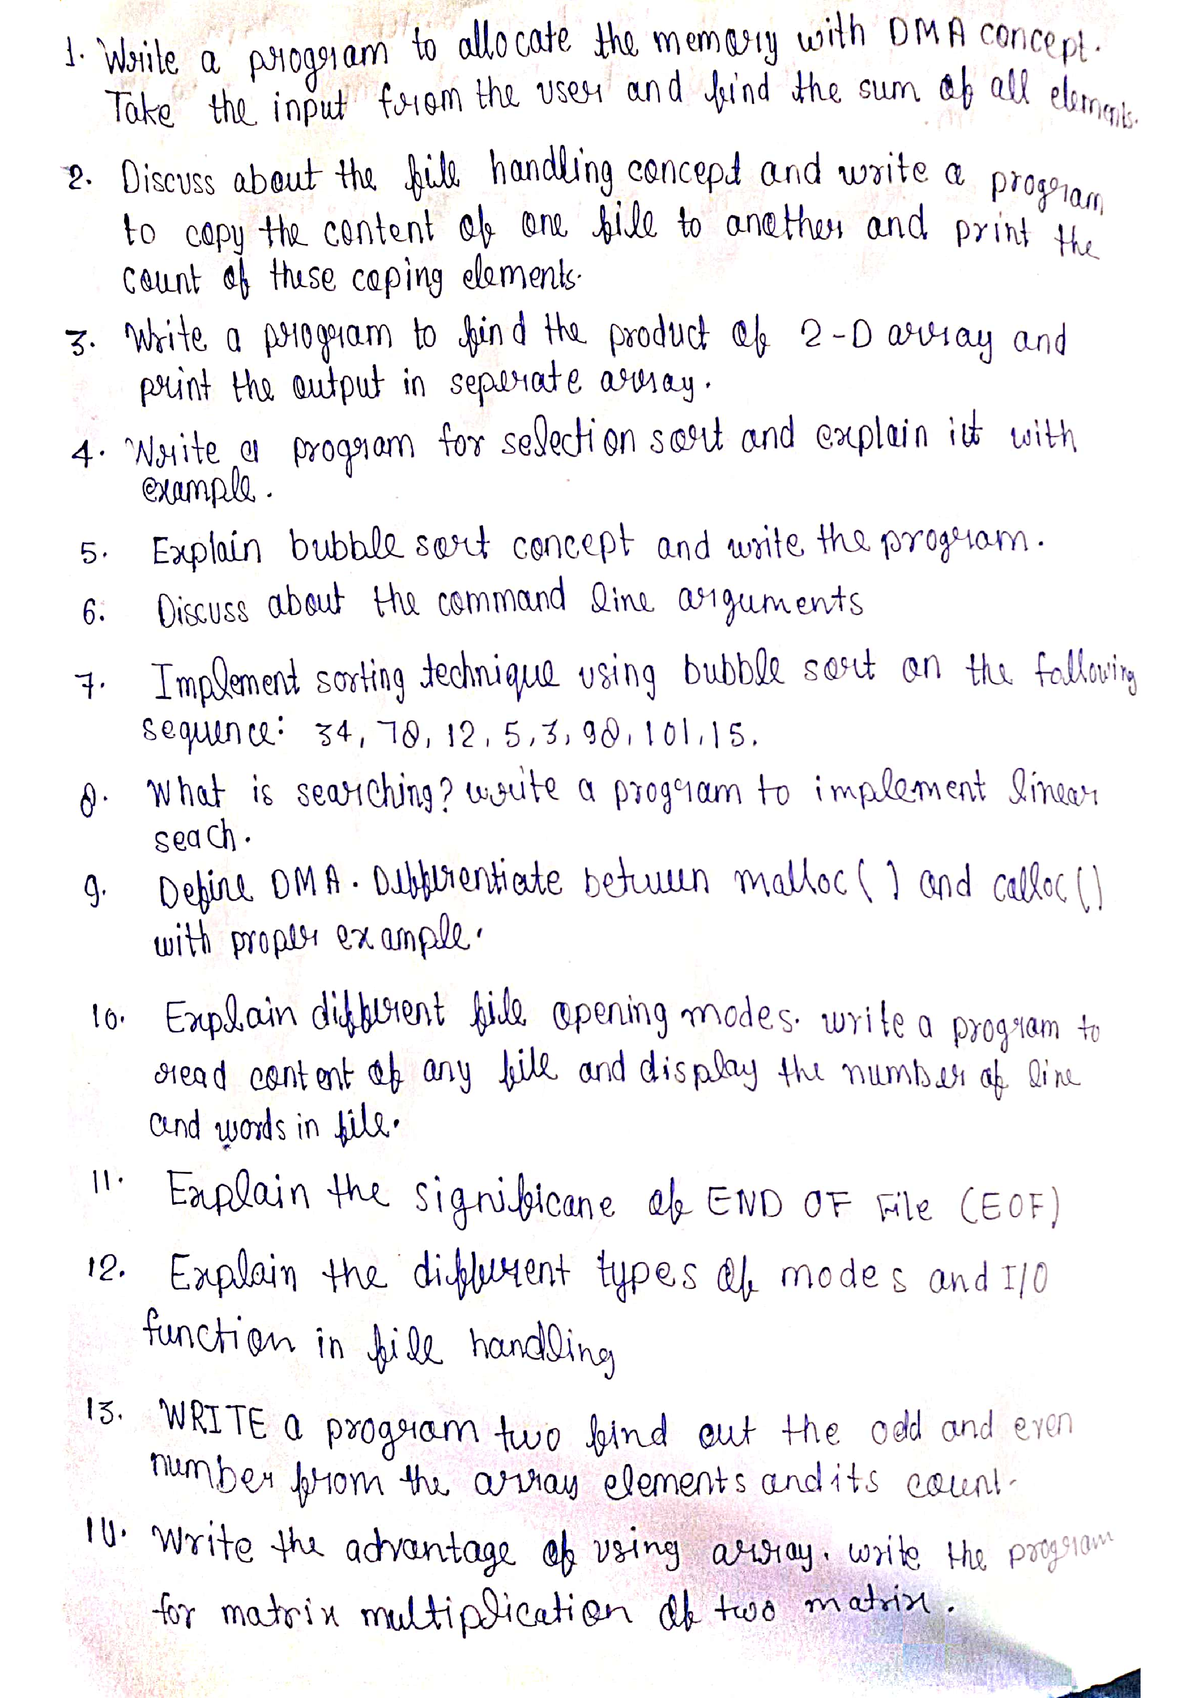 1. Write a program to allocate the memory with DMA concept.
Take the input from the user and find the sum of all elements.
2. Discuss about the file handling concept and write a program
to copy the content of one file to another and print the
count of these coping elements.
3. Write a program to find the product of 2-D array and
print the output in seperate array.
4. Write a program for selection sort and explain it with
example.
5. Explain bubble sort concept and write the program.
6. Discuss about the command line arguments
7. Implement sorting technique using bubble sort on the following
sequence: 34, 78, 12, 5, 3, 98, 101, 15.
8. What is searching? write a program to implement linear
seach.
9. Define DMA. Differentiate between malloc( ) and calloc()
with proper example.
10. Explain different file opening modes. write a program to
read content of any file and display the number of line
and words in file.
11. Explain the significane of END OF File (EOF)
12. Explain the different types of modes and I/O
function in file handling
13. WRITE a program two find out the odd and even
number from the array elements and its count.
14. Write the advantage of using array. write the program
for matrix multiplication of two matrix.